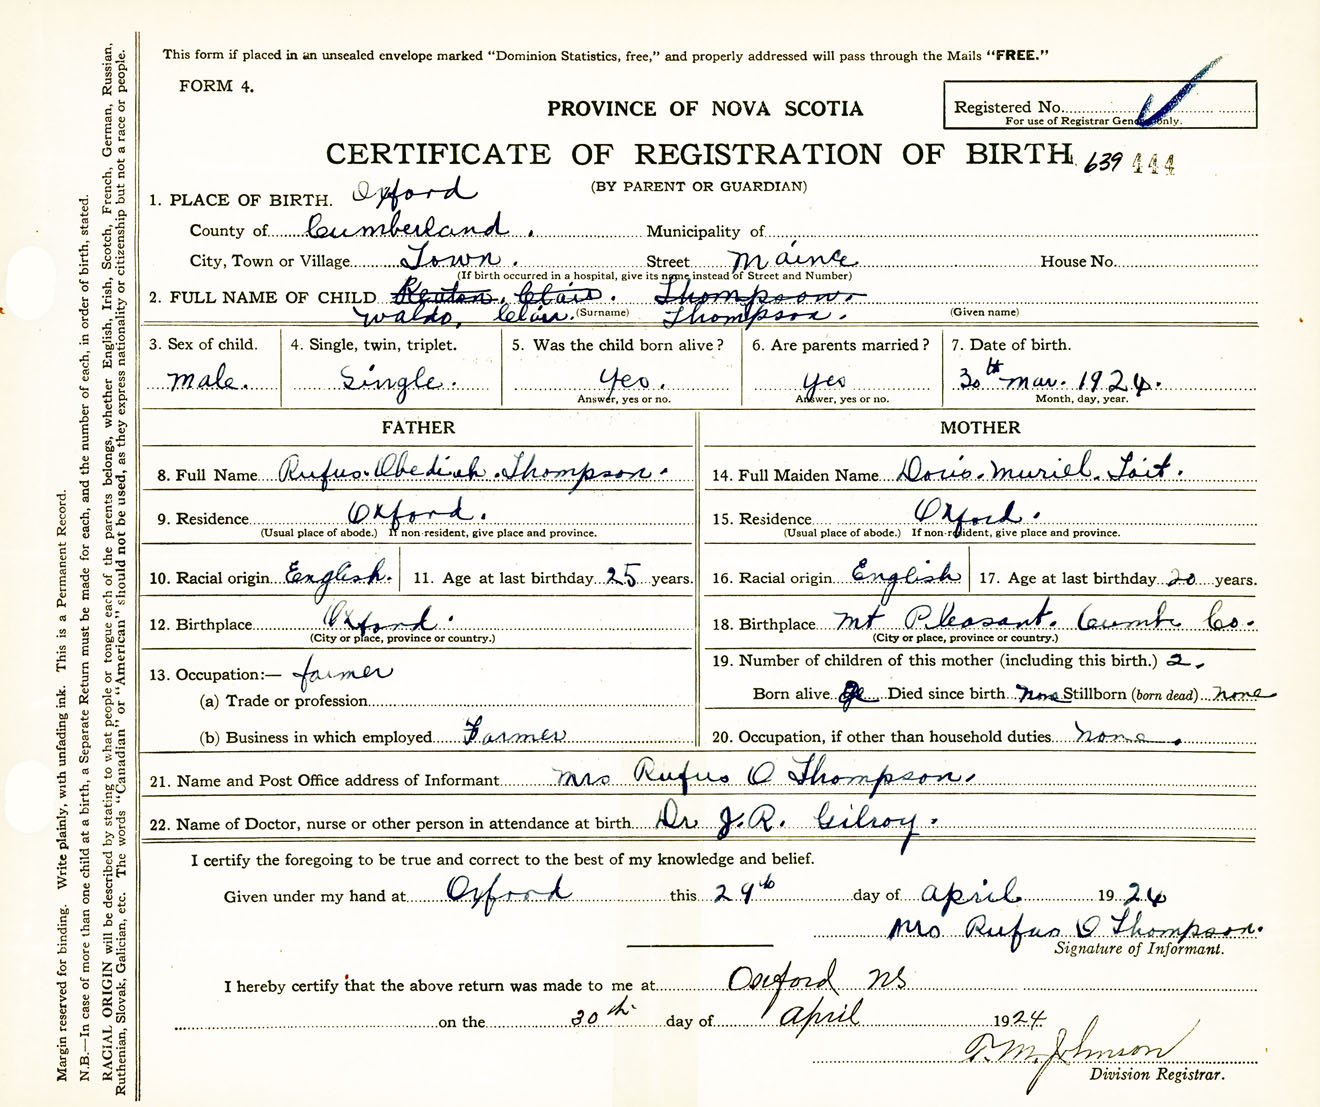 This form if placed in an unsealed envelope marked "Dominion Statistics, free," and properly addressed will pass through the Mails "FREE."
FORM 4.
PROVINCE OF NOVA SCOTIA
Registered No.
For use of Registrar General only.
CERTIFICATE OF REGISTRATION OF BIRTH 639 444
(BY PARENT OR GUARDIAN)
1. PLACE OF BIRTH. Oxford
County of Cumberland. Municipality of
City, Town or Village Town. Street Maine House No.
(If birth occurred in a hospital, give its name instead of Street and Number)
2. FULL NAME OF CHILD Keaton. Clair. Thompson.
Waldo, Clair. (Surname) Thompson. (Given name)
3. Sex of child. 4. Single, twin, triplet. 5. Was the child born alive? 6. Are parents married? 7. Date of birth.
Male. Single. Yes. Yes 30th Mar. 1924.
Answer, yes or no. Answer, yes or no. Month, day, year.
FATHER MOTHER
8. Full Name Rufus. Obediah. Thompson. 14. Full Maiden Name Doris. Muriel. Tait.
9. Residence Oxford. 15. Residence Oxford.
(Usual place of abode.) If non-resident, give place and province. (Usual place of abode.) If non-resident, give place and province.
10. Racial origin English. 11. Age at last birthday 25 years. 16. Racial origin English 17. Age at last birthday 20 years.
12. Birthplace Oxford. 18. Birthplace Mt Pleasant. Cumb Co.
(City or place, province or country.) (City or place, province or country.)
13. Occupation:— farmer 19. Number of children of this mother (including this birth.) 2.
(a) Trade or profession Born alive Died since birth None Stillborn (born dead) None
(b) Business in which employed Farmer 20. Occupation, if other than household duties None.
21. Name and Post Office address of Informant Mrs Rufus O Thompson.
22. Name of Doctor, nurse or other person in attendance at birth Dr J. R. Gilroy.
I certify the foregoing to be true and correct to the best of my knowledge and belief.
Given under my hand at Oxford this 29th day of April 1924
Mrs Rufus O Thompson.
Signature of Informant.
I hereby certify that the above return was made to me at Oxford NS
on the 30th day of April 1924.
T. M. Johnson
Division Registrar.
Margin reserved for binding. Write plainly, with unfading ink. This is a Permanent Record.
N.B.—In case of more than one child at a birth, a Separate Return must be made for each, and the number of each, in order of birth, stated.
RACIAL ORIGIN will be described by stating to what people or tongue each of the parents belongs, whether English, Irish, Scotch, French, German, Russian,
Ruthenian, Slovak, Galician, etc. The words "Canadian" or "American" should not be used, as they express nationality or citizenship but not a race or people.